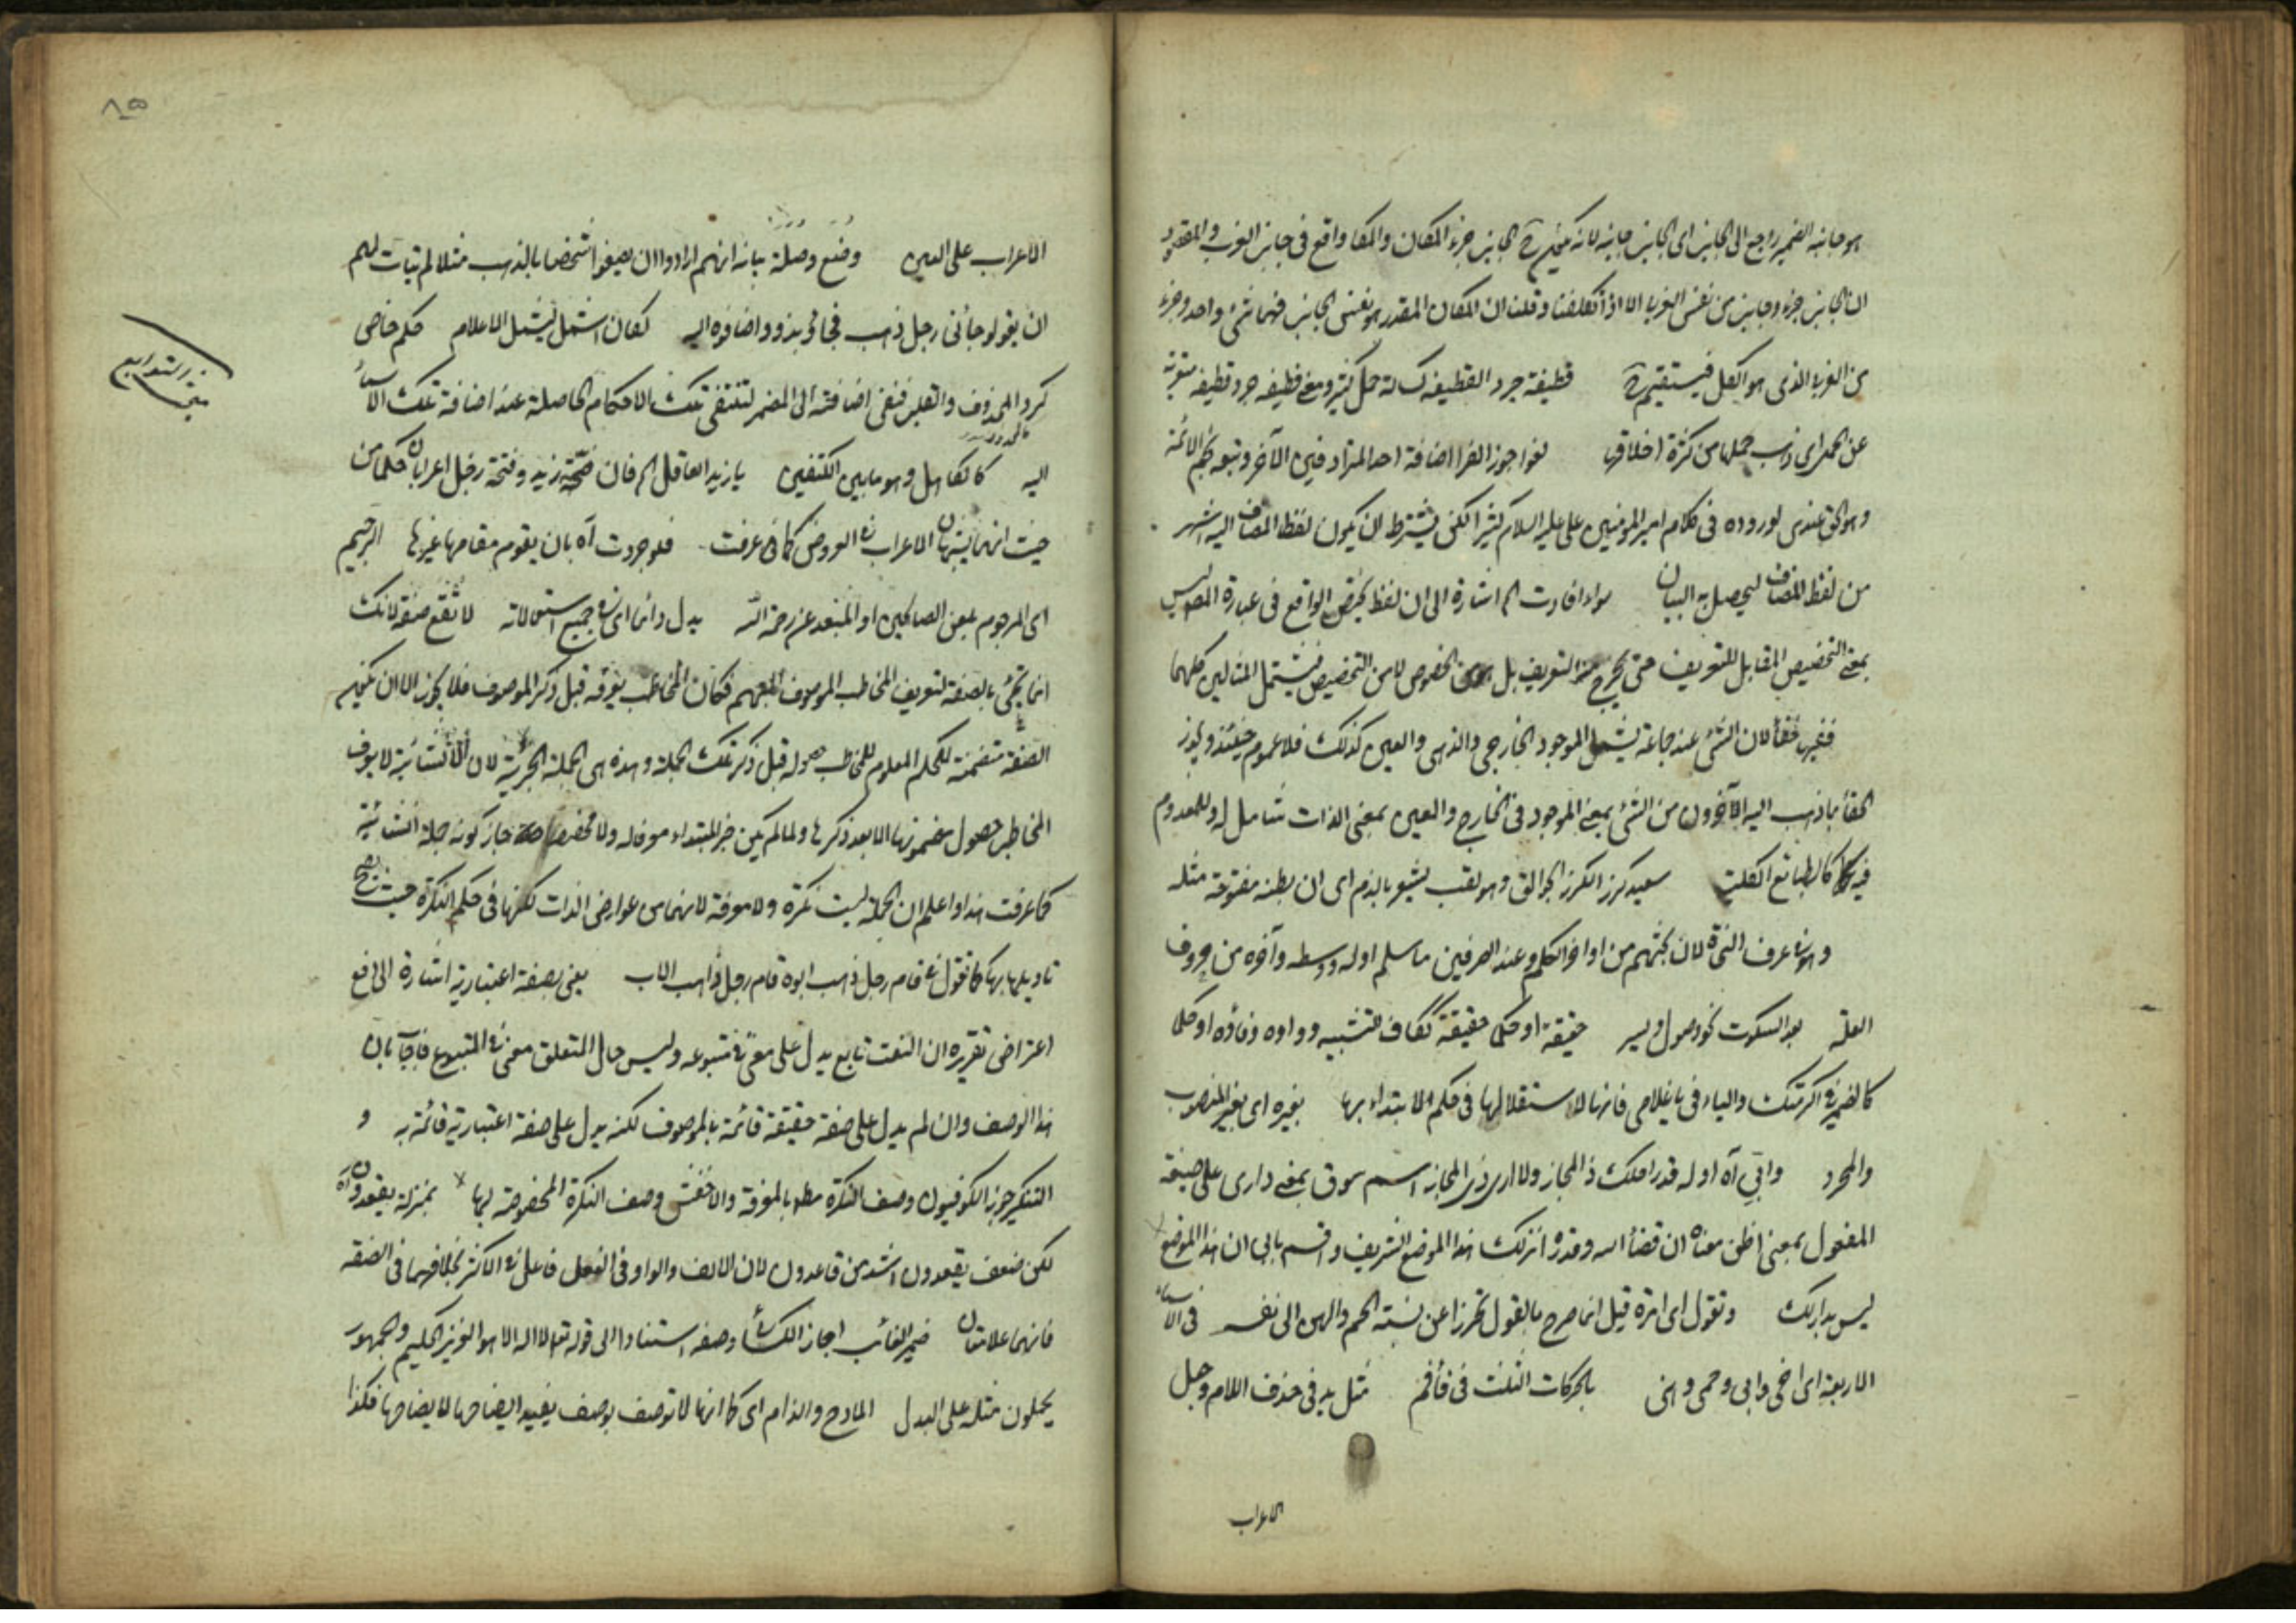 هو جانبه الضمير راجع الى الجانب اى الجانب جانبه لانه الجانب جزء المكان والمكان واقع فى جانب الغرب والمقصود
ان الجانب جزء وجانب من نفس الغربى الا اذا تكلفنا وقلنا ان المكان المقدر هو نفس الجانب فهما شئ واحد وجزء
من الغربى الذى هو الكل فيستقيم قطيفة جرد القطيفة كساء له خمل كثير ومعنى قطيفة جرد قطيفة متعرية
عن الخمل اى ذهب خملها من كثرة اخلاقها لغوا جوز الفرا اضافة احد المترادفين الآخر وتبعه نجم الائمة
وهو الحق عندى لوروده فى كلام امير المومنين على عليه السلام كثيرا لكن يشترط ان يكون لفظ المضاف اليه اشهر
من لفظ المضاف ليحصل به البيان سواء افادت الم اشارة الى ان لفظ يختص الواقع فى عبارة المص ليس
بمعنى التخصيص المقابل للتعريف حتى يخرج عنه التعريف بل من الخصوص لا من التخصيص فيشتمل المثالين كلهما
ففيه خفأ لان الشئ عند جماعة يشمل الموجود الخارجى والذهنى والعين كذلك فلا عموم حينئذ ويجوز
الخفأ بما ذهب اليه الآخرون من الشئ بمعنى الموجود فى الخارج والعين بمعنى الذات شامل له وللمعدوم
فيه كالطبائع الكلية سعيد كرز الكرز الجوالق وهو لقب يشعر بالذم اى ان بطنه مفتوحة مثله
وهو فى عرف النحاة لان بحثهم من اواخر الكلم وعند الصرفيين ما سلم اوله ووسطه وآخره من حروف
العلة بعد السكوت نحو وصول وسير حقيقة او حكما حقيقة ككاف التشبيه وواوه وفاؤه او حكما
كالضمير فى اكرمتك والياء فى يا غلامى فانها لاستقلالها فى حكم الابتداء بها بغيره اى بغير المنصوب
والمجرد وابي آه اوله قدر احلك ذا المجاز ولا ارى ذى المجاز اسم سوق بمعنى دارى على صيغة
المفعول بمعنى اظن معناه ان قضأ الله وقدره انزلك هذا الموضع الشريف واقسم بابى ان هذا الموضع
ليس بدارك وتقول اى امرة قيل انما صرح بالقول تحرزا عن نسبة الحم والهن الى نفسه فى الاسماء
الاربعة اى اخى وابى وحمى وهنى بالحركات الثلث فى فأفم مثل يد فى حذف اللام وجعل
الاعراب
٨٥
الاعراب على العين وضع وصلة بيانه انهم ارادوا ان يصفوا شخصا بالذهب مثلا لم يتأت لهم
ان يقولوا جائنى رجل ذهب فجاؤا بذو واضافوه اليه لكان اشمل ليشمل الاعلام حكم خاص
كرد المحذوف والقلب فنفى اضافته الى المضمر لتنتفى تلك الاحكام الحاصلة عند اضافة تلك الاسماء
اليه كالكاهل وهو ما بين الكتفين يا زيد العاقل الم فان ضمة زيد وفتحة رجل اعرابان حكما من
حيث انهما يشبهان الاعراب فى العروض كما عرفت فلو جردت آه بان يقوم مقامها غيرها الرجيم
اى المرجوم بلعن الصالحين او المبتعد عن رحمة الله يدل دائما اى فى جميع استعمالاته لا تقع صفة لانك
انما تجئ بالصفة لتعريف المخاطب الموصوف المبهم فكان المخاطب يعرفه قبل ذكر الموصوف فلا يجوز الا ان يكون
الصفة متضمنة للحكم المعلوم للمخاطب حصوله قبل ذكر تلك الجملة وهذه هى الجملة الخبرية لان الانشائية لا يعرف
المخاطب حصول مضمونها الا بعد ذكرها ولما لم يكن خبر المبتداء معرفا له ولا مخصصا جاز كونه جملة انشائية
كما عرفت هذا واعلم ان الجملة ليست نكرة ولا معرفة لانهما من عوارض الذات لكنها فى حكم النكرة حيث يصح
تاويلها بها كما تقول فى قام رجل ذهب ابوه قام رجل ذاهب الاب يعنى بصفة اعتبارية اشارة الى دفع
اعتراض تقريره ان النعت تابع يدل على معنى فى متبوعه وليس حال المتعلق معنى فى المتبوع فاجاب بان
هذا الوصف وان لم يدل على صفة حقيقة قائمة بالموصوف لكنه يدل على صفة اعتبارية قائمة به و
التنكير جوز الكوفيون وصف النكرة مط بالمعرفة والاخفش وصف النكرة المخصوصة بها بمنزلة يقعدون آه
لكن ضعف يقعدون اشد من قاعدون لان الالف والواو فى الفعل فاعل فى الاكثر بخلافهما فى الصفة
فانهما علامتان ضمير الغائب اجاز الكسائى وصفه استنادا الى قوله تعالى لا اله الا هو العزيز الحكيم والجمهور
يحملون مثله على البدل المادح والذام اى كما انها لا توصف بوصف يفيد ايضاحها لا يضاحها فكذا